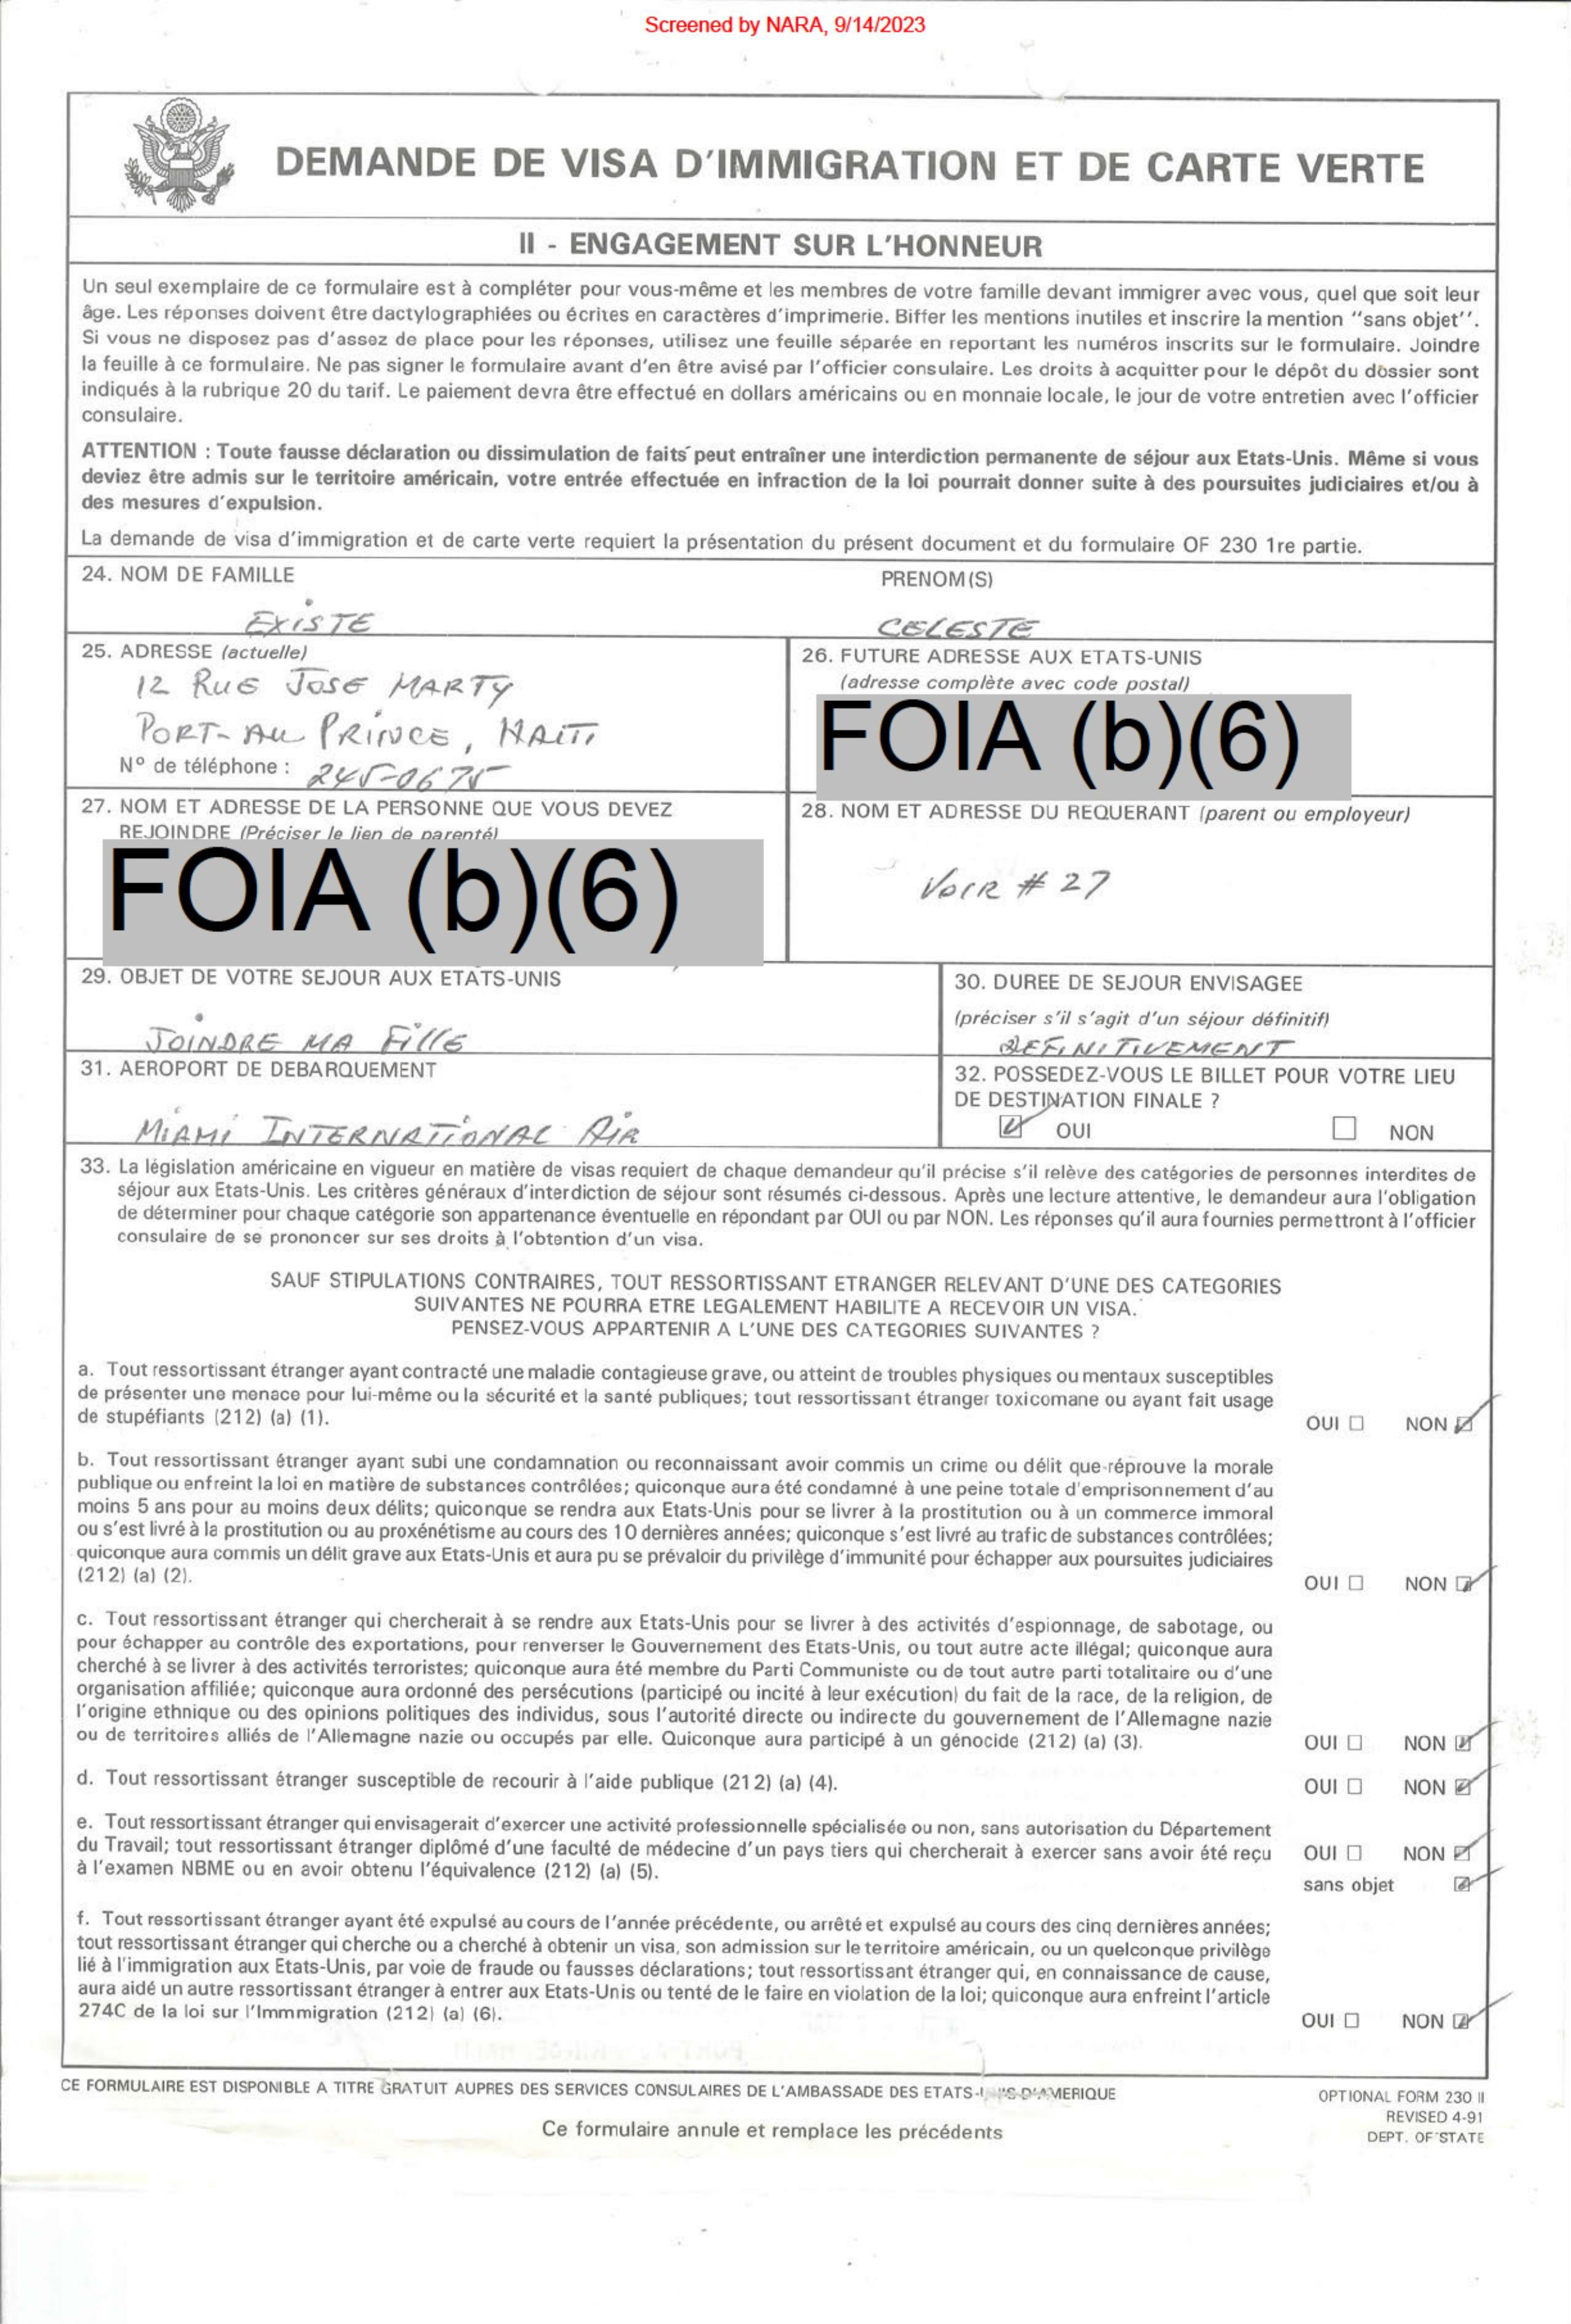 Screened by NARA, 9/14/2023
DEMANDE DE VISA D'IMMIGRATION ET DE CARTE VERTE
II - ENGAGEMENT SUR L'HONNEUR
Un seul exemplaire de ce formulaire est à compléter pour vous-même et les membres de votre famille devant immigrer avec vous, quel que soit leur
âge. Les réponses doivent être dactylographiées ou écrites en caractères d'imprimerie. Biffer les mentions inutiles et inscrire la mention ''sans objet''.
Si vous ne disposez pas d'assez de place pour les réponses, utilisez une feuille séparée en reportant les numéros inscrits sur le formulaire. Joindre
la feuille à ce formulaire. Ne pas signer le formulaire avant d'en être avisé par l'officier consulaire. Les droits à acquitter pour le dépôt du dossier sont
indiqués à la rubrique 20 du tarif. Le paiement devra être effectué en dollars américains ou en monnaie locale, le jour de votre entretien avec l'officier
consulaire.
ATTENTION : Toute fausse déclaration ou dissimulation de faits peut entraîner une interdiction permanente de séjour aux Etats-Unis. Même si vous
deviez être admis sur le territoire américain, votre entrée effectuée en infraction de la loi pourrait donner suite à des poursuites judiciaires et/ou à
des mesures d'expulsion.
La demande de visa d'immigration et de carte verte requiert la présentation du présent document et du formulaire OF 230 1re partie.
24. NOM DE FAMILLE PRENOM(S)
EXISTE CELESTE
25. ADRESSE (actuelle)
12 RUE JOSE MARTY
PORT-AU PRINCE, HAITI
N° de téléphone : 245-0675
26. FUTURE ADRESSE AUX ETATS-UNIS
(adresse complète avec code postal)
FOIA (b)(6)
27. NOM ET ADRESSE DE LA PERSONNE QUE VOUS DEVEZ
REJOINDRE (Préciser le lien de parenté)
FOIA (b)(6)
28. NOM ET ADRESSE DU REQUERANT (parent ou employeur)
VOIR # 27
29. OBJET DE VOTRE SEJOUR AUX ETATS-UNIS
JOINDRE MA FILLE
30. DUREE DE SEJOUR ENVISAGEE
(préciser s'il s'agit d'un séjour définitif)
DEFINITIVEMENT
31. AEROPORT DE DEBARQUEMENT
MIAMI INTERNATIONAL AIR
32. POSSEDEZ-VOUS LE BILLET POUR VOTRE LIEU
DE DESTINATION FINALE ?
OUI NON
33. La législation américaine en vigueur en matière de visas requiert de chaque demandeur qu'il précise s'il relève des catégories de personnes interdites de
séjour aux Etats-Unis. Les critères généraux d'interdiction de séjour sont résumés ci-dessous. Après une lecture attentive, le demandeur aura l'obligation
de déterminer pour chaque catégorie son appartenance éventuelle en répondant par OUI ou par NON. Les réponses qu'il aura fournies permettront à l'officier
consulaire de se prononcer sur ses droits à l'obtention d'un visa.
SAUF STIPULATIONS CONTRAIRES, TOUT RESSORTISSANT ETRANGER RELEVANT D'UNE DES CATEGORIES
SUIVANTES NE POURRA ETRE LEGALEMENT HABILITE A RECEVOIR UN VISA.
PENSEZ-VOUS APPARTENIR A L'UNE DES CATEGORIES SUIVANTES ?
a. Tout ressortissant étranger ayant contracté une maladie contagieuse grave, ou atteint de troubles physiques ou mentaux susceptibles
de présenter une menace pour lui-même ou la sécurité et la santé publiques; tout ressortissant étranger toxicomane ou ayant fait usage
de stupéfiants (212) (a) (1).
OUI NON
b. Tout ressortissant étranger ayant subi une condamnation ou reconnaissant avoir commis un crime ou délit que réprouve la morale
publique ou enfreint la loi en matière de substances contrôlées; quiconque aura été condamné à une peine totale d'emprisonnement d'au
moins 5 ans pour au moins deux délits; quiconque se rendra aux Etats-Unis pour se livrer à la prostitution ou à un commerce immoral
ou s'est livré à la prostitution ou au proxénétisme au cours des 10 dernières années; quiconque s'est livré au trafic de substances contrôlées;
quiconque aura commis un délit grave aux Etats-Unis et aura pu se prévaloir du privilège d'immunité pour échapper aux poursuites judiciaires
(212) (a) (2).
OUI NON
c. Tout ressortissant étranger qui chercherait à se rendre aux Etats-Unis pour se livrer à des activités d'espionnage, de sabotage, ou
pour échapper au contrôle des exportations, pour renverser le Gouvernement des Etats-Unis, ou tout autre acte illégal; quiconque aura
cherché à se livrer à des activités terroristes; quiconque aura été membre du Parti Communiste ou de tout autre parti totalitaire ou d'une
organisation affiliée; quiconque aura ordonné des persécutions (participé ou incité à leur exécution) du fait de la race, de la religion, de
l'origine ethnique ou des opinions politiques des individus, sous l'autorité directe ou indirecte du gouvernement de l'Allemagne nazie
ou de territoires alliés de l'Allemagne nazie ou occupés par elle. Quiconque aura participé à un génocide (212) (a) (3).
OUI NON
d. Tout ressortissant étranger susceptible de recourir à l'aide publique (212) (a) (4).
OUI NON
e. Tout ressortissant étranger qui envisagerait d'exercer une activité professionnelle spécialisée ou non, sans autorisation du Département
du Travail; tout ressortissant étranger diplômé d'une faculté de médecine d'un pays tiers qui chercherait à exercer sans avoir été reçu
à l'examen NBME ou en avoir obtenu l'équivalence (212) (a) (5).
OUI NON
sans objet
f. Tout ressortissant étranger ayant été expulsé au cours de l'année précédente, ou arrêté et expulsé au cours des cinq dernières années;
tout ressortissant étranger qui cherche ou a cherché à obtenir un visa, son admission sur le territoire américain, ou un quelconque privilège
lié à l'immigration aux Etats-Unis, par voie de fraude ou fausses déclarations; tout ressortissant étranger qui, en connaissance de cause,
aura aidé un autre ressortissant étranger à entrer aux Etats-Unis ou tenté de le faire en violation de la loi; quiconque aura enfreint l'article
274C de la loi sur l'Immmigration (212) (a) (6).
OUI NON
CE FORMULAIRE EST DISPONIBLE A TITRE GRATUIT AUPRES DES SERVICES CONSULAIRES DE L'AMBASSADE DES ETATS-UNIS D'AMERIQUE
Ce formulaire annule et remplace les précédents
OPTIONAL FORM 230 II
REVISED 4-91
DEPT. OF STATE